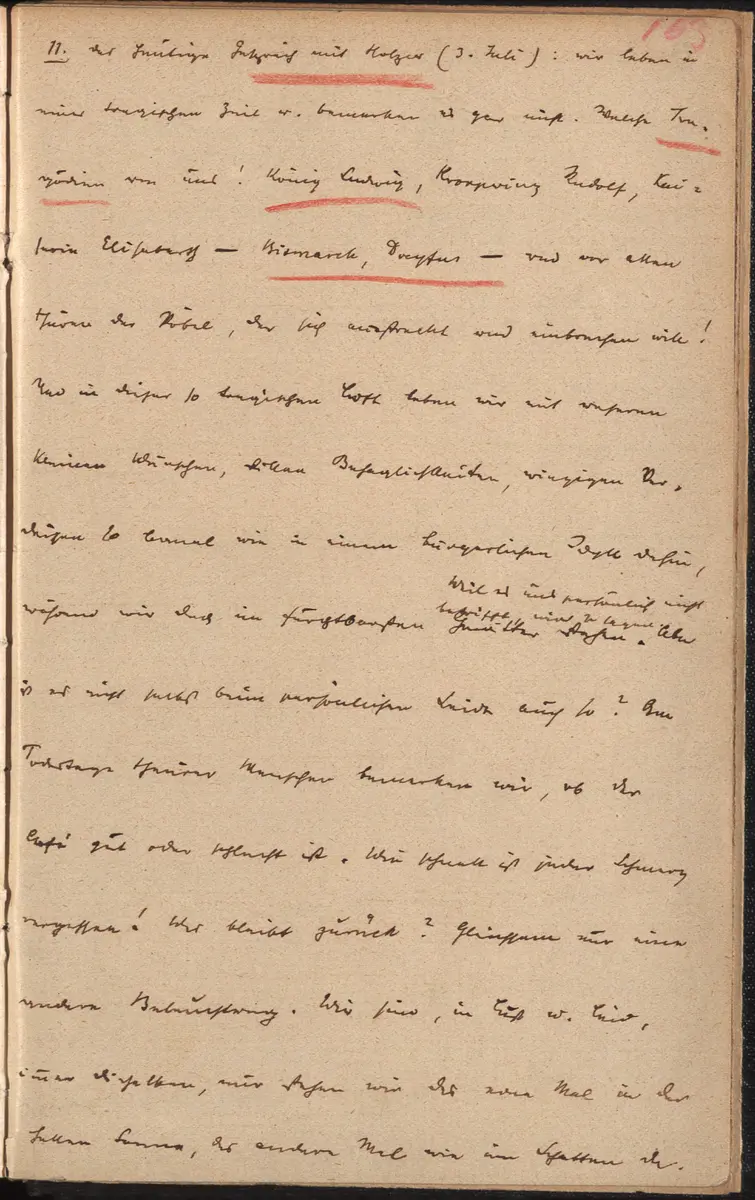 163
11. das heutige Gespräch mit Holzer (3. Juli): wir leben in
einer tragischen Zeit u. bemerken es gar nicht. Welche Tra-
gödien um uns! König Ludwig, Kronprinz Rudolf, Kai-
serin Elisabeth — Bismarck, Dreyfus — und vor allen
Thüren der Pöbel, der sich ausstreckt und einbrechen will!
Und in dieser so tragischen Luft leben wir mit unseren
kleinen Wünschen, Behaglichkeiten, winzigen
wie in einem bürgerlichen Idyll dahin,
Weil es uns persönlich nicht
betrifft, wäre zu sagen.
während wir doch im furchtbarsten Gewitter stehen. Aber
ist es nicht selbst beim persönlichen Leide auch so? Am
Todestage theurer Menschen bemerken wir, ob der
Café gut oder schlecht ist. Wie schnell ist jeder Schmerz
vergessen! Was bleibt zurück? Gleichsam nur eine
andere Beleuchtung. Wir sind, in Lust u. Leid,
immer dieselben, nur stehen wir das eine Mal in der
hellen Sonne, das andere Mal wie im Schatten da.